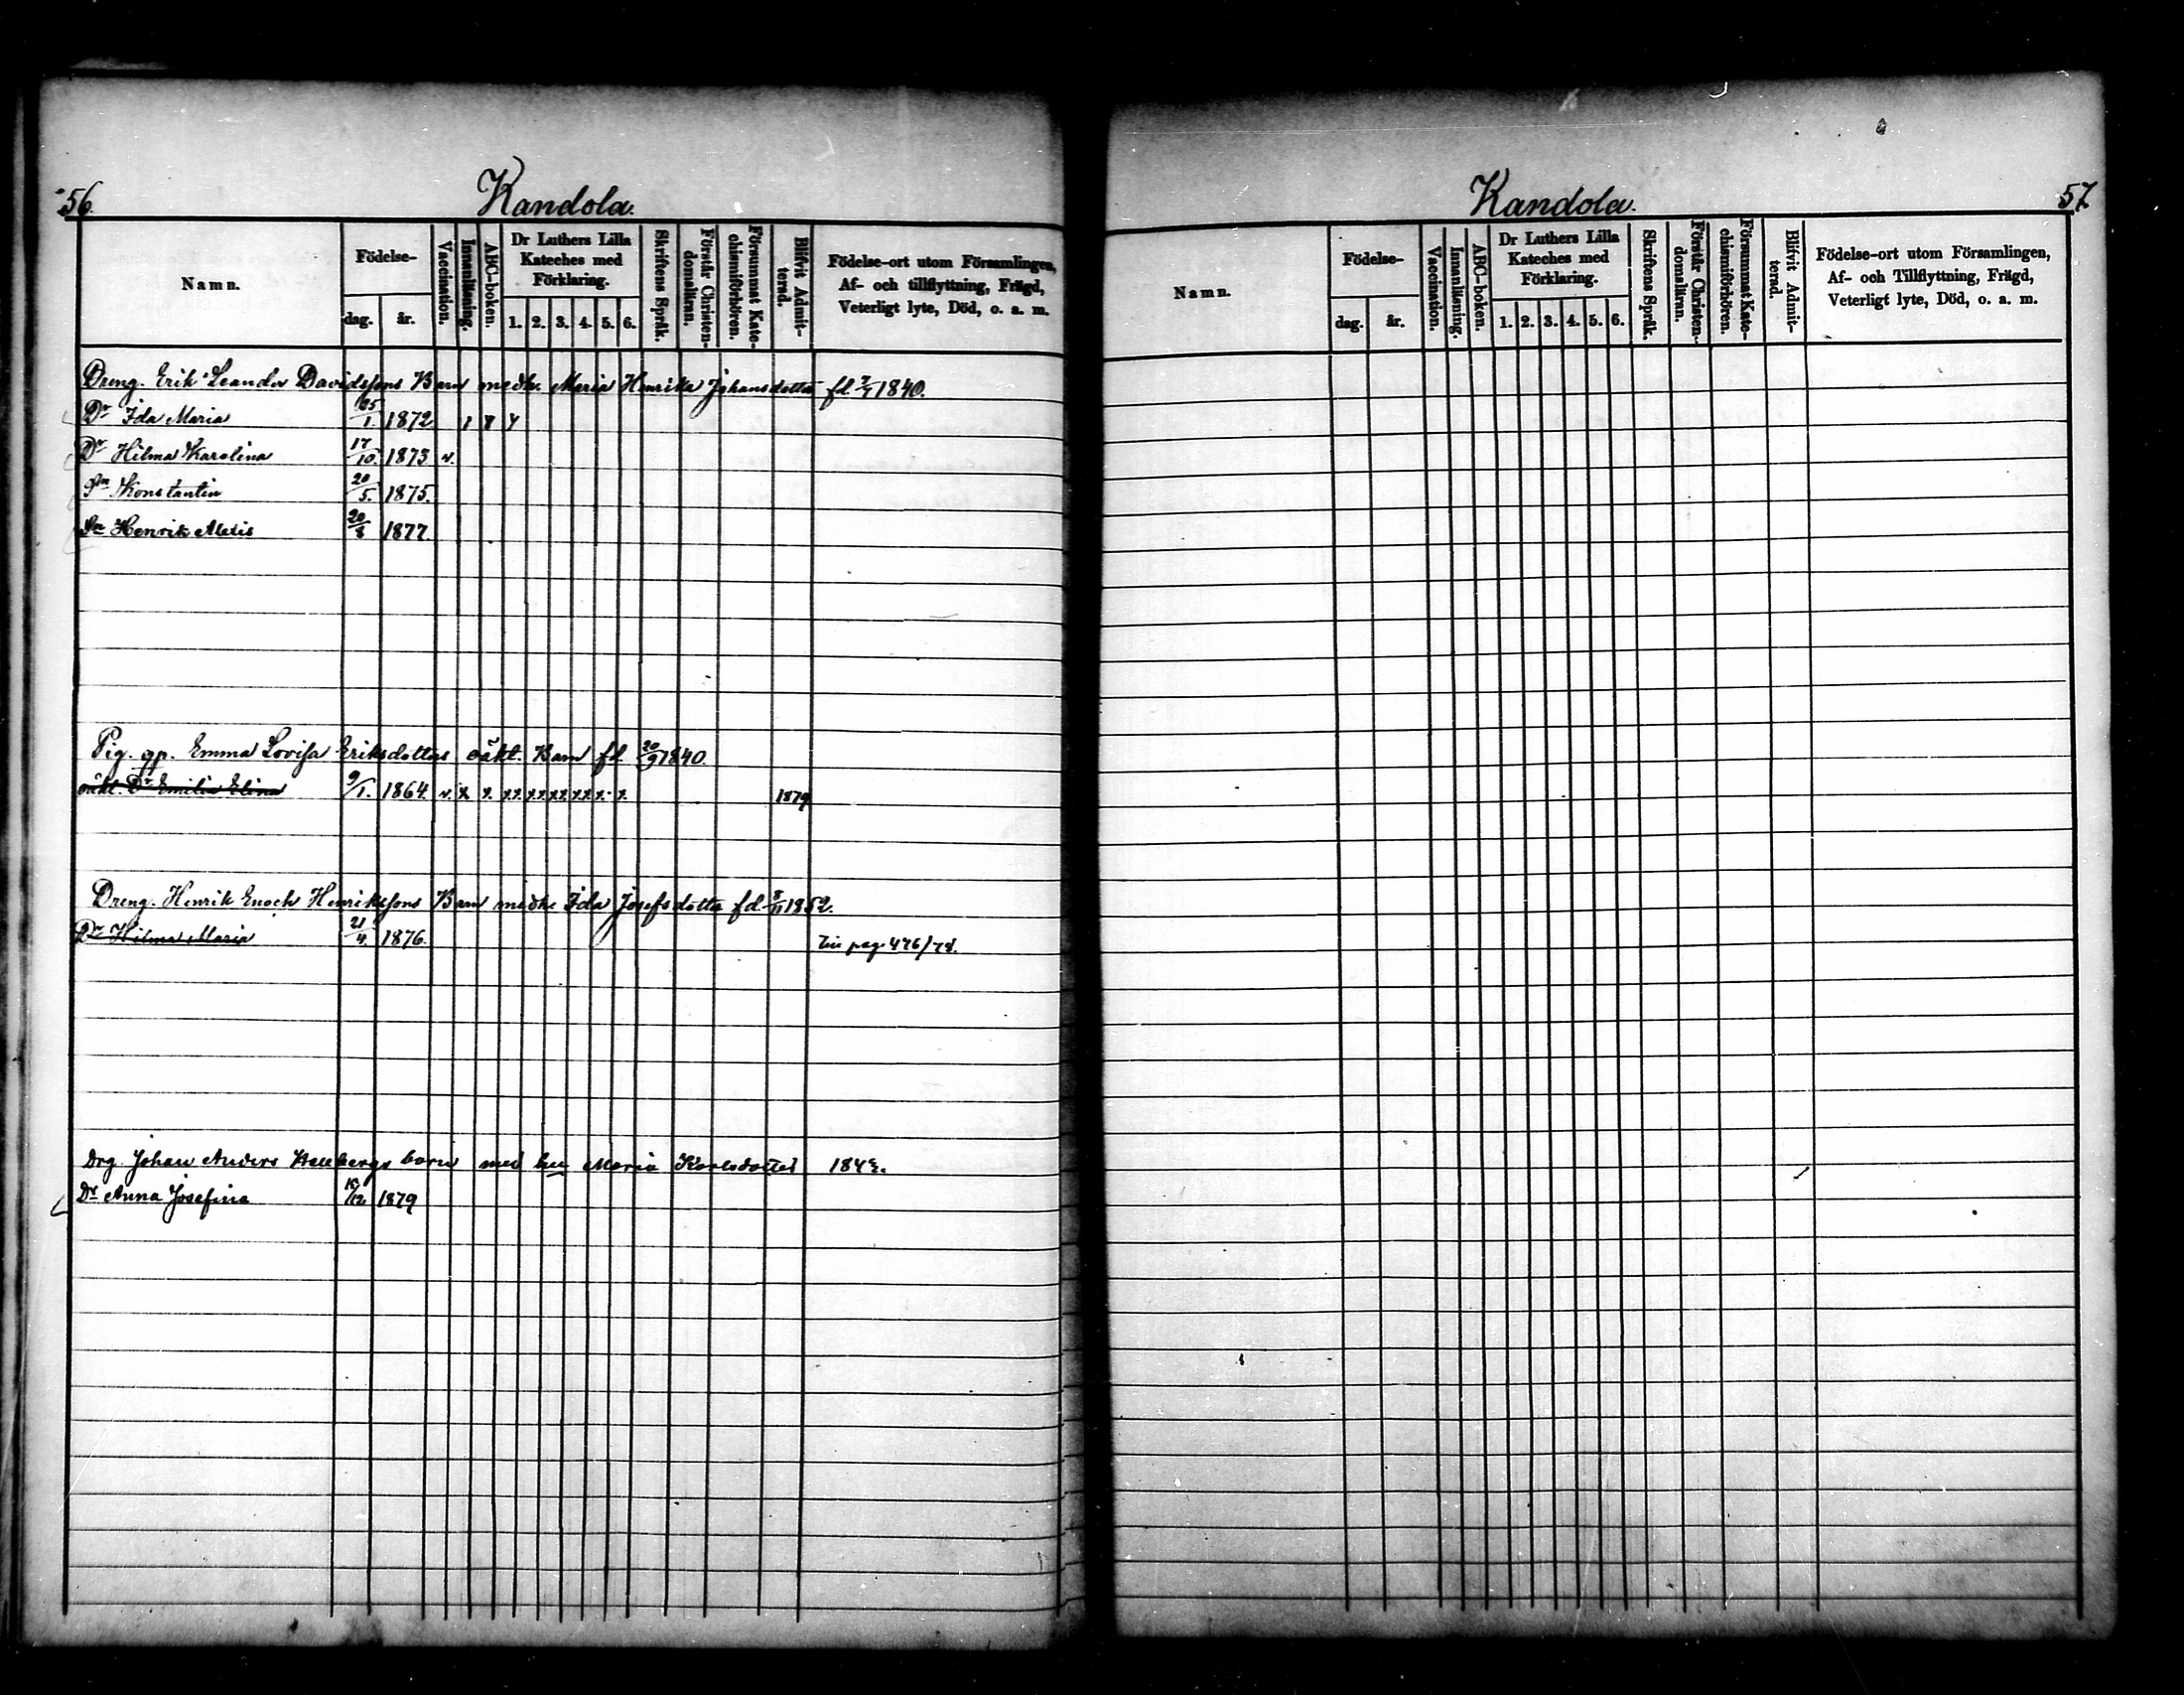 56.
Kandola.
Namn.
Födelse-
dag.
år.
Vaccination.
Innanläsning.
ABC-boken.
Dr Luthers Lilla
Kateches med
Förklaring.
1. 2. 3. 4. 5. 6.
Skriftens Språk.
Förstår Christen-
domsläran.
Försummat Kate-
chismiförhören.
Blifvit Admit-
terad.
Födelse-ort utom Församlingen,
Af- och tillflyttning, Frägd,
Veterligt lyte, Död, o. a. m.
Dreng. Erik Leander Davidssons Barn medh. Maria Henrika Johansdotter fd. 1840.
Dr Ida Maria 25/1. 1872
Dr Hilma Karolina 17/10. 1873 v.
Sn Konstantin 20/5. 1875.
Sn Henrik Alexis 20/8 1877
Pig. gp. Emma Lovisa Eriksdotters oäkt. Barn fd 20/9 1840.
oäkt. Dr Emilia Elina 9/1. 1864. v. x x. xx xx xx xx x. x. 1879
Dreng. Henrik Enoch Henrikssons Barn medh Ida Josefsdotter fd. 8/11 1852.
Dr Hilma Maria 21/4. 1876. pag 476/78.
Drg. Johan Anders barn med Maria Karlsdotter
Dr Anna Josefina 1879
Kandola.
57
Namn.
Födelse-
dag.
år.
Vaccination.
Innanläsning.
ABC-boken.
Dr Luthers Lilla
Kateches med
Förklaring.
1. 2. 3. 4. 5. 6.
Skriftens Språk.
Förstår Christen-
domsläran.
Försummat Kate-
chismiförhören.
Blifvit Admit-
terad.
Födelse-ort utom Församlingen,
Af- och Tillflyttning, Frägd,
Veterligt lyte, Död, o. a. m.